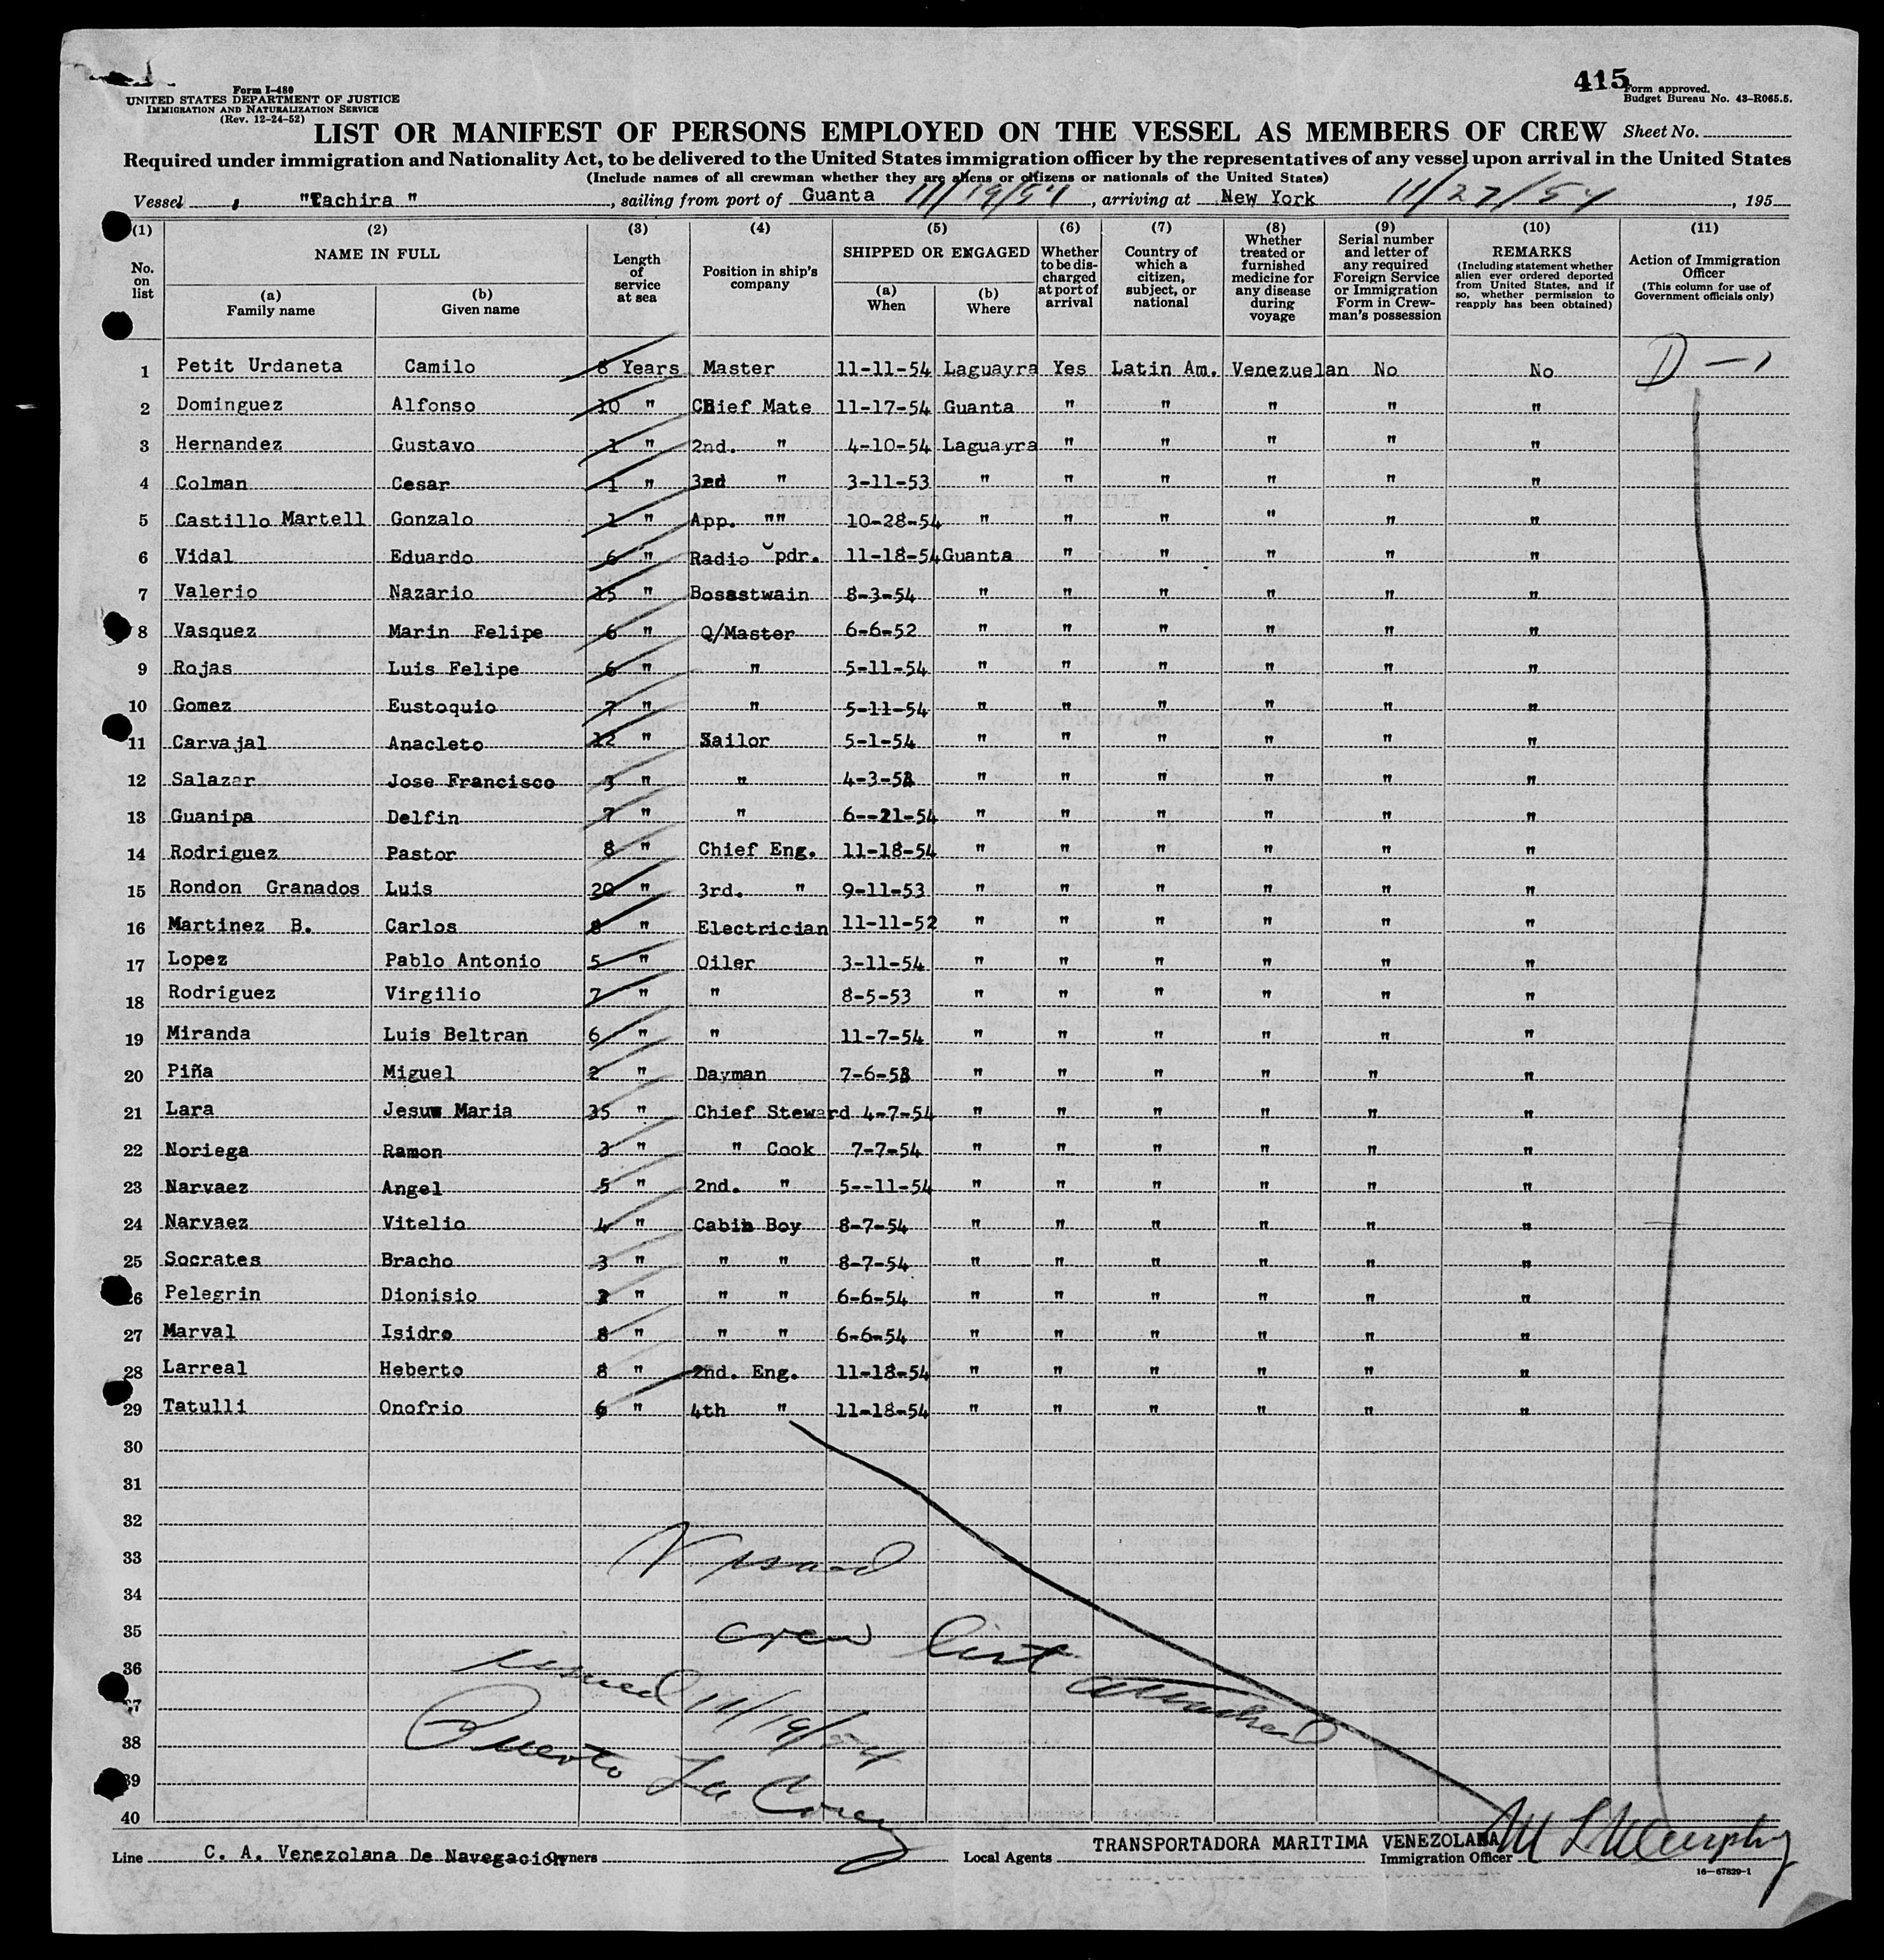 415
Form I-480
UNITED STATES DEPARTMENT OF JUSTICE
IMMIGRATION AND NATURALIZATION SERVICE
(Rev. 12-24-52)
Form approved.
Budget Bureau No. 43-R065.5.
LIST OR MANIFEST OF PERSONS EMPLOYED ON THE VESSEL AS MEMBERS OF CREW Sheet No.
Required under immigration and Nationality Act, to be delivered to the United States immigration officer by the representatives of any vessel upon arrival in the United States
(Include names of all crewman whether they are aliens or citizens or nationals of the United States)
Vessel "Tachira", sailing from port of Guanta 11/19/54, arriving at New York 11/27/54, 195
(1) No. on list
(2) NAME IN FULL (a) Family name (b) Given name
(3) Length of service at sea
(4) Position in ship's company
(5) SHIPPED OR ENGAGED (a) When (b) Where
(6) Whether to be discharged at port of arrival
(7) Country of which a citizen, subject, or national
(8) Whether treated or furnished medicine for any disease during voyage
(9) Serial number and letter of any required Foreign Service or Immigration Form in Crewman's possession
(10) REMARKS (Including statement whether alien ever ordered deported from United States, and if so, whether permission to reapply has been obtained)
(11) Action of Immigration Officer (This column for use of Government officials only)
1 Petit Urdaneta Camilo 8 Years Master 11-11-54 Laguayra Yes Latin Am. Venezuelan No No D-1
2 Dominguez Alfonso 10 " Chief Mate 11-17-54 Guanta " " " " "
3 Hernandez Gustavo 1 " 2nd. " 4-10-54 Laguayra " " " " "
4 Colman Cesar 1 " 3rd " 3-11-53 " " " " " "
5 Castillo Martell Gonzalo 1 " App. "" 10-28-54 " " " " " "
6 Vidal Eduardo 6 " Radio Opdr. 11-18-54 Guanta " " " " "
7 Valerio Nazario 15 " Bosastwain 8-3-54 " " " " " "
8 Vasquez Marin Felipe 6 " Q/Master 6-6-52 " " " " " "
9 Rojas Luis Felipe 6 " " 5-11-54 " " " " " "
10 Gomez Eustoquio 7 " " 5-11-54 " " " " " "
11 Carvajal Anacleto 12 " Sailor 5-1-54 " " " " " "
12 Salazar Jose Francisco 3 " " 4-3-53 " " " " " "
13 Guanipa Delfin 7 " " 6--21-54 " " " " " "
14 Rodriguez Pastor 8 " Chief Eng. 11-18-54 " " " " " "
15 Rondon Granados Luis 20 " 3rd. " 9-11-53 " " " " " "
16 Martinez B. Carlos 8 " Electrician 11-11-52 " " " " " "
17 Lopez Pablo Antonio 5 " Oiler 3-11-54 " " " " " "
18 Rodriguez Virgilio 7 " " 8-5-53 " " " " " "
19 Miranda Luis Beltran 6 " " 11-7-54 " " " " " "
20 Piña Miguel 2 " Dayman 7-6-53 " " " " " "
21 Lara Jesus Maria 35 " Chief Steward 4-7-54 " " " " " "
22 Noriega Ramon 3 " " Cook 7-7-54 " " " " " "
23 Narvaez Angel 5 " 2nd. " 5--11-54 " " " " " "
24 Narvaez Vitelio 4 " Cabin Boy 8-7-54 " " " " " "
25 Socrates Bracho 3 " " " 8-7-54 " " " " " "
26 Pelegrin Dionisio " " " 6-6-54 " " " " " "
27 Marval Isidro 8 " " " 6-6-54 " " " " " "
28 Larreal Heberto 8 " 2nd. Eng. 11-18-54 " " " " " "
29 Tatulli Onofrio 6 " 4th " 11-18-54 " " " " " "
30
31
32
33 Visaed
34
35 crew list
36 attached
37 issued 11/19/54
38 Puerto La Cruz
39
40
Line C. A. Venezolana De Navegacion Owners Local Agents TRANSPORTADORA MARITIMA VENEZOLANA Immigration Officer M L Murphy
16—67829-1